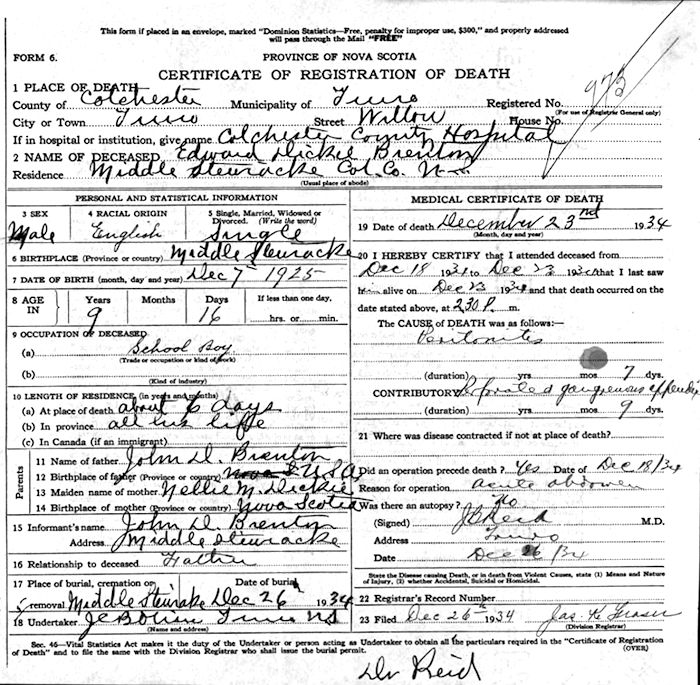 This form if placed in an envelope, marked "Dominion Statistics—Free, penalty for improper use, $300," and properly addressed
will pass through the Mail "FREE"
FORM 6.
PROVINCE OF NOVA SCOTIA
CERTIFICATE OF REGISTRATION OF DEATH
973
1 PLACE OF DEATH
County of Colchester Municipality of Truro Registered No.
(For use of Registrar General only)
City or Town Truro Street Willow House No.
If in hospital or institution, give name Colchester County Hospital
2 NAME OF DECEASED Edward Dickie Brenton
Residence Middle Stewiacke Col. Co. N
(Usual place of abode)
PERSONAL AND STATISTICAL INFORMATION
3 SEX 4 RACIAL ORIGIN 5 Single, Married, Widowed or
Divorced. (Write the word)
Male English Single
6 BIRTHPLACE (Province or country) Middle Stewiacke
7 DATE OF BIRTH (month, day and year) Dec 7th 1925
8 AGE IN Years Months Days If less than one day,
9 16 hrs. or min.
9 OCCUPATION OF DECEASED
(a) School Boy
(Trade or occupation or kind of work)
(b)
(Kind of industry)
10 LENGTH OF RESIDENCE (in years and months)
(a) At place of death about 6 days
(b) In province all his life
(c) In Canada (if an immigrant)
Parents
11 Name of father John D. Brenton
12 Birthplace of father (Province or country) Nova S U.S.A
13 Maiden name of mother Nellie M. Dickie
14 Birthplace of mother (Province or country) Nova Scotia
15 Informant's name John D. Brenton
Address Middle Stewiacke
16 Relationship to deceased Father
17 Place of burial, cremation or Date of burial
removal Middle Stewiacke Dec 26th 1934
18 Undertaker Truro NS
(Name and address)
MEDICAL CERTIFICATE OF DEATH
19 Date of death December 23rd 1934
(Month, day and year)
20 I HEREBY CERTIFY that I attended deceased from
Dec 18 1934 to Dec 23 1934 that I last saw
him alive on Dec 23 1934 and that death occurred on the
date stated above, at 2.30 P. m.
The CAUSE OF DEATH was as follows:—
Peritonites
(duration) yrs. mos. 7 dys.
CONTRIBUTORY gangrenous appendix
(duration) yrs. mos. 9 dys.
21 Where was disease contracted if not at place of death?
Did an operation precede death? Yes Date of Dec 18/34
Reason for operation acute abdomen
Was there an autopsy? No
(Signed) Reid M.D.
Address Truro
Date Dec 26/34
State the Disease causing Death, or in death from Violent Causes, state (1) Means and Nature
of Injury, (2) whether Accidental, Suicidal or Homicidal.
22 Registrar's Record Number
23 Filed Dec 26th 1934 Jas. K. Fraser
(Division Registrar)
Sec. 46—Vital Statistics Act makes it the duty of the Undertaker or person acting as Undertaker to obtain all the particulars required in the "Certificate of Registration
of Death" and to file the same with the Division Registrar who shall issue the burial permit. (OVER)
Dr Reid